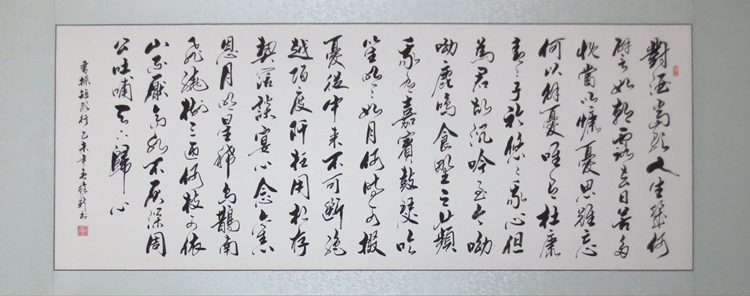 對酒當歌人生幾何
譬如朝露去日苦多
慨當以慷憂思難忘
何以解憂唯有杜康
青〻子衿悠〻我心但
為君故沉吟至今呦
呦鹿鳴食野之蘋
我有嘉賓鼓瑟吹
笙明〻如月何時可掇
憂從中來不可斷絕
越陌度阡枉用相存
契闊談宴心念舊
恩月明星稀烏鵲南
飛繞樹三匝何枝可依
山不厭高水不厭深周
公吐哺天下歸心
曹操短歌行乙未年